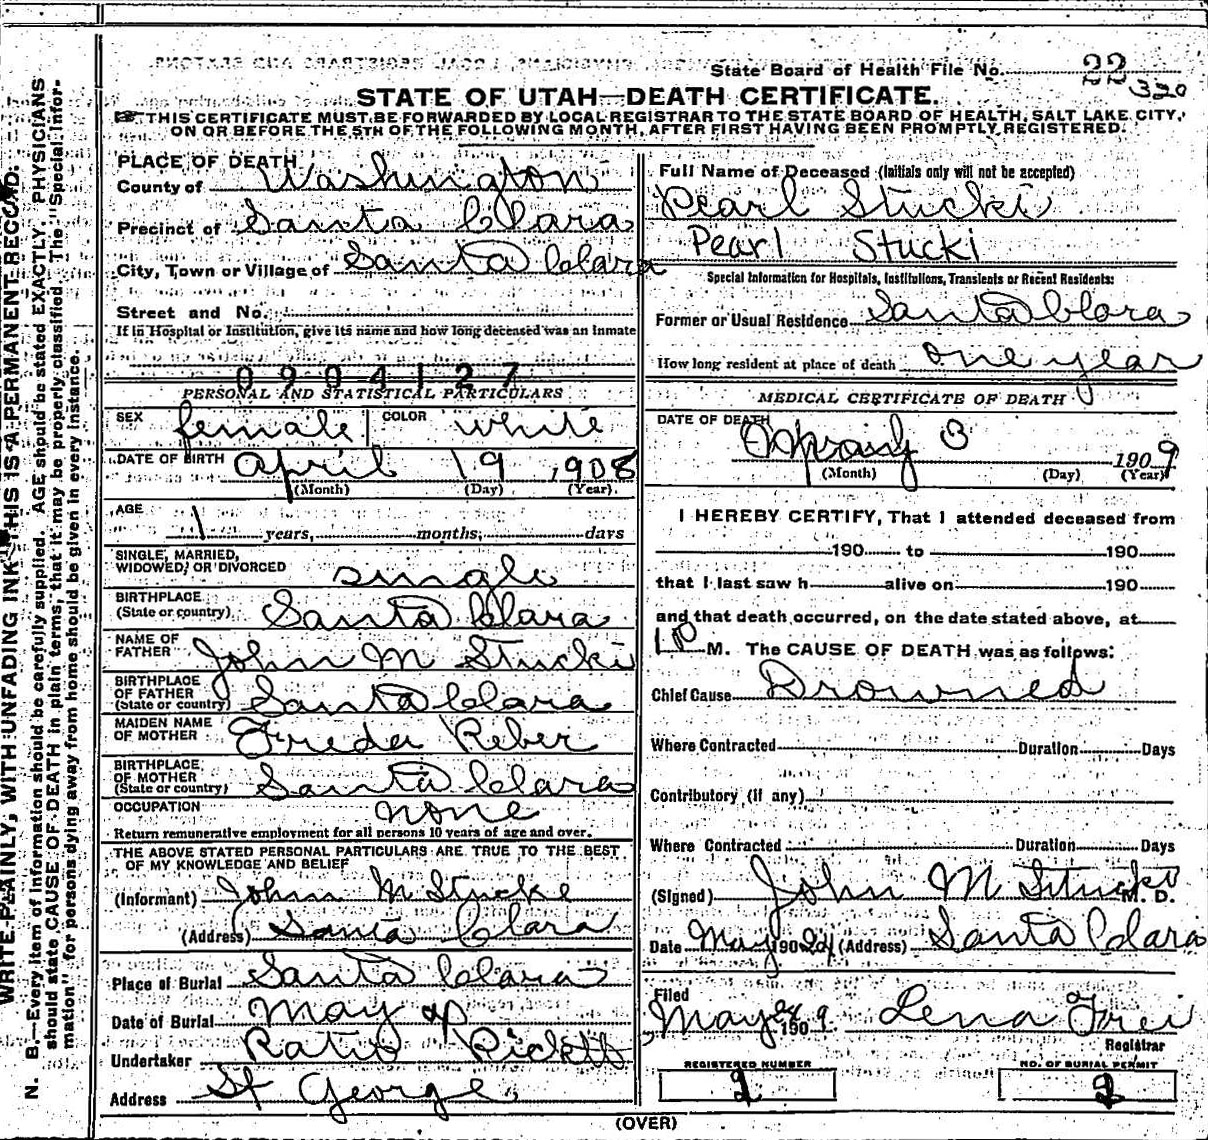 State Board of Health File No. 22
320
STATE OF UTAH—DEATH CERTIFICATE.
THIS CERTIFICATE MUST BE FORWARDED BY LOCAL REGISTRAR TO THE STATE BOARD OF HEALTH, SALT LAKE CITY,
ON OR BEFORE THE 5TH OF THE FOLLOWING MONTH, AFTER FIRST HAVING BEEN PROMPTLY REGISTERED.
WRITE PLAINLY, WITH UNFADING INK—THIS IS A PERMANENT RECORD.
N. B.—Every item of information should be carefully supplied. AGE should be stated EXACTLY. PHYSICIANS
should state CAUSE OF DEATH in plain terms, that it may be properly classified. The "Special Infor-
mation" for persons dying away from home should be given in every instance.
PLACE OF DEATH
County of Washington
Precinct of Santa Clara
City, Town or Village of Santa Clara
Street and No.
If in Hospital or Institution, give its name and how long deceased was an inmate
0904127
PERSONAL AND STATISTICAL PARTICULARS
SEX female COLOR white
DATE OF BIRTH april 19, 1908
(Month) (Day) (Year)
AGE 1 years, months, days
SINGLE, MARRIED,
WIDOWED, OR DIVORCED single
BIRTHPLACE
(State or country) Santa Clara
NAME OF
FATHER John M Stucki
BIRTHPLACE
OF FATHER
(State or country) Santa Clara
MAIDEN NAME
OF MOTHER Freda Reber
BIRTHPLACE
OF MOTHER
(State or country) Santa Clara
OCCUPATION none
Return remunerative employment for all persons 10 years of age and over.
THE ABOVE STATED PERSONAL PARTICULARS ARE TRUE TO THE BEST
OF MY KNOWLEDGE AND BELIEF
(Informant) John M Stucke
(Address) Santa Clara
Place of Burial Santa Clara
Date of Burial May
Undertaker
Address St George
Full Name of Deceased (Initials only will not be accepted)
Pearl Stucki
Pearl Stucki
Special Information for Hospitals, Institutions, Transients or Recent Residents:
Former or Usual Residence Santa Clara
How long resident at place of death one year
MEDICAL CERTIFICATE OF DEATH
DATE OF DEATH 3 1909
(Month) (Day) (Year)
I HEREBY CERTIFY, That I attended deceased from
190 to 190
that I last saw h alive on 190
and that death occurred, on the date stated above, at
1 P M. The CAUSE OF DEATH was as follows:
Chief Cause Drowned
Where Contracted Duration Days
Contributory (if any)
Where Contracted Duration Days
(Signed) John M Stucki M. D.
Date May 190 (Address) Santa Clara
Filed
May 28 1909 Lena Frei
Registrar
REGISTERED NUMBER
NO. OF BURIAL PERMIT
2
(OVER)